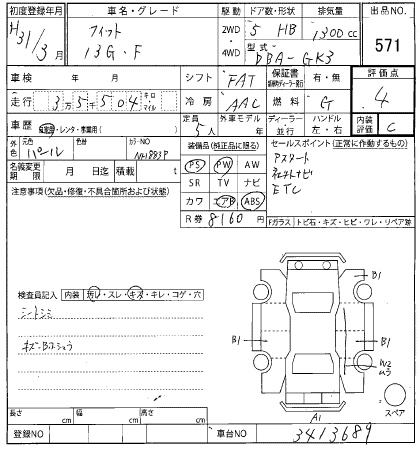 初度登録年月 車名・グレード 駆動 ドア数・形状 排気量 出品NO.
H31/3月 フィット 13G・F 2WD・4WD 5 HB 1300cc 571
型式 DBA-GK3
車検 年 月 シフト FAT 保証書 有・無 評価点
走行 35504 キロ・マイル 冷房 AAC 燃料 G 4
車歴 自家用・レンタ・事業用( ) 定員 5人 外車モデル 年 ディーラー・並行 ハンドル 左・右 内装評価 C
外色 元色 パール 色替 カラーNO NH883P
名義変更期限 月 日迄 積載 t
装備品(純正品に限る)
PS PW AW
SR TV ナビ
カワ エアB ABS
R券 8160円
セールスポイント(正常に作動するもの)
Pスタート
ETC
注意事項(欠品・修復・不具合箇所および状態)
Fガラス トビ石・キズ・ヒビ・ワレ・リペア跡
検査員記入 内装 汚レ・スレ・キズ・キレ・コゲ・穴
シートシミ
B1
B1
B1
B1
W2
ムラ
A1
スペア
長さ cm 幅 cm 高さ cm
登録NO 車台NO 3413689